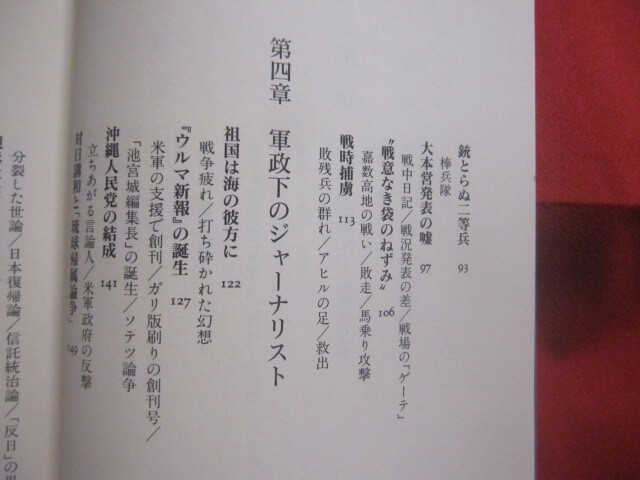 銃とらぬ二等兵 93
棒兵隊
大本営発表の嘘 97
戦中日記/戦況発表の差/戦場の「ゲーテ」
“戦意なき袋のねずみ” 106
嘉数高地の戦い/敗走/馬乗り攻撃
戦時捕虜 113
敗残兵の群れ/アヒルの足/救出
第四章 軍政下のジャーナリスト
祖国は海の彼方に 122
戦争疲れ/打ち砕かれた幻想
『ウルマ新報』の誕生 127
米軍の支援で創刊/ガリ版刷りの創刊号/
「池宮城編集長」の誕生/ソテツ論争
沖縄人民党の結成 141
立ちあがる言論人/米軍政府の反撃
対日講和と「琉球帰属論争」 149
分裂した世論/日本復帰論/信託統治論/「反日」の